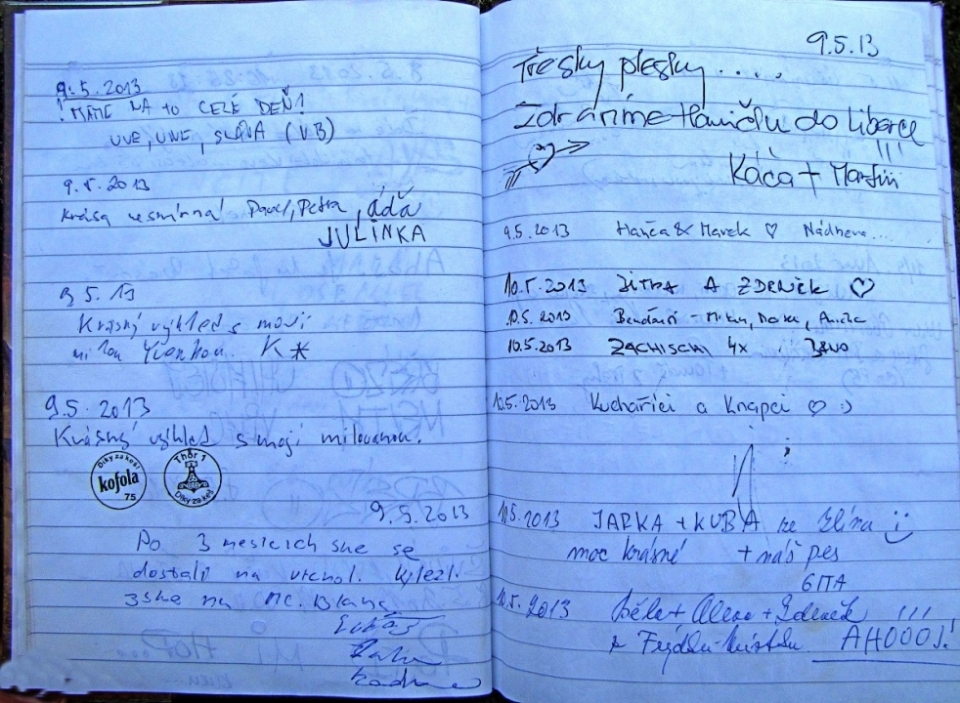 9.5.2013
! MÁME NA TO CELÉ DEŇ!
UVE, UNE, SLÁVA (VB)
9.5.2013
Krása nesmírná Pavel, Petra, áďa
JULINKA
9 5. 13
Krásný výhled s mojí
milou Yvonkou. K*
9.5.2013
Krásný výhled s mojí milovanou.
Díky za keš!
kofola
75
Thór 1
Díky za keš
9.5.2013
Po 3 mesicich sme se
dostali na vrchol.
3sme na Mt. Blanc
Lukáš
Radim
9.5.13
Třesky plesky....
Zdravíme Haničku do Liberce
!!!
Káča + Martin
9.5.2013 Hanča & Marek ♡ Nádhera...
10.5.2013 JITKA A ZDENĚK ♡
10.5.2013
10.5.2013 ZACHISCHI 4x BRNO
10.5.2013 Kuchaříci a Knapci ♡ :)
10.5.2013 JARKA + KUBA ze Zlína :)
moc krásné + náš pes
GITA
10.5.2013 Běla + Alena + Zdeněk !!!
z Frýdku-Místku AHOOOJ!